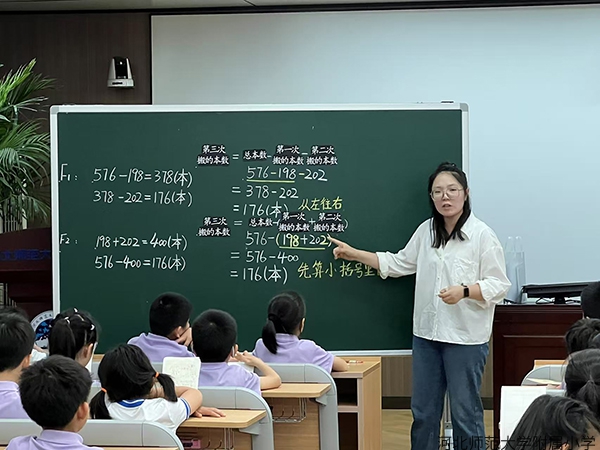 F1:
576-198=378(本)
378-202=176(本)
第三次搬的本数 = 总本数 - 第一次搬的本数 - 第二次搬的本数
576-198-202
=378-202
=176(本) 从左往右
F2:
198+202=400(本)
576-400=176(本)
第三次搬的本数 = 总本数 第一次搬的本数 + 第二次搬的本数
576-(198+202)
=576-400
=176(本) 先算小括号里
河北师范大学附属小学